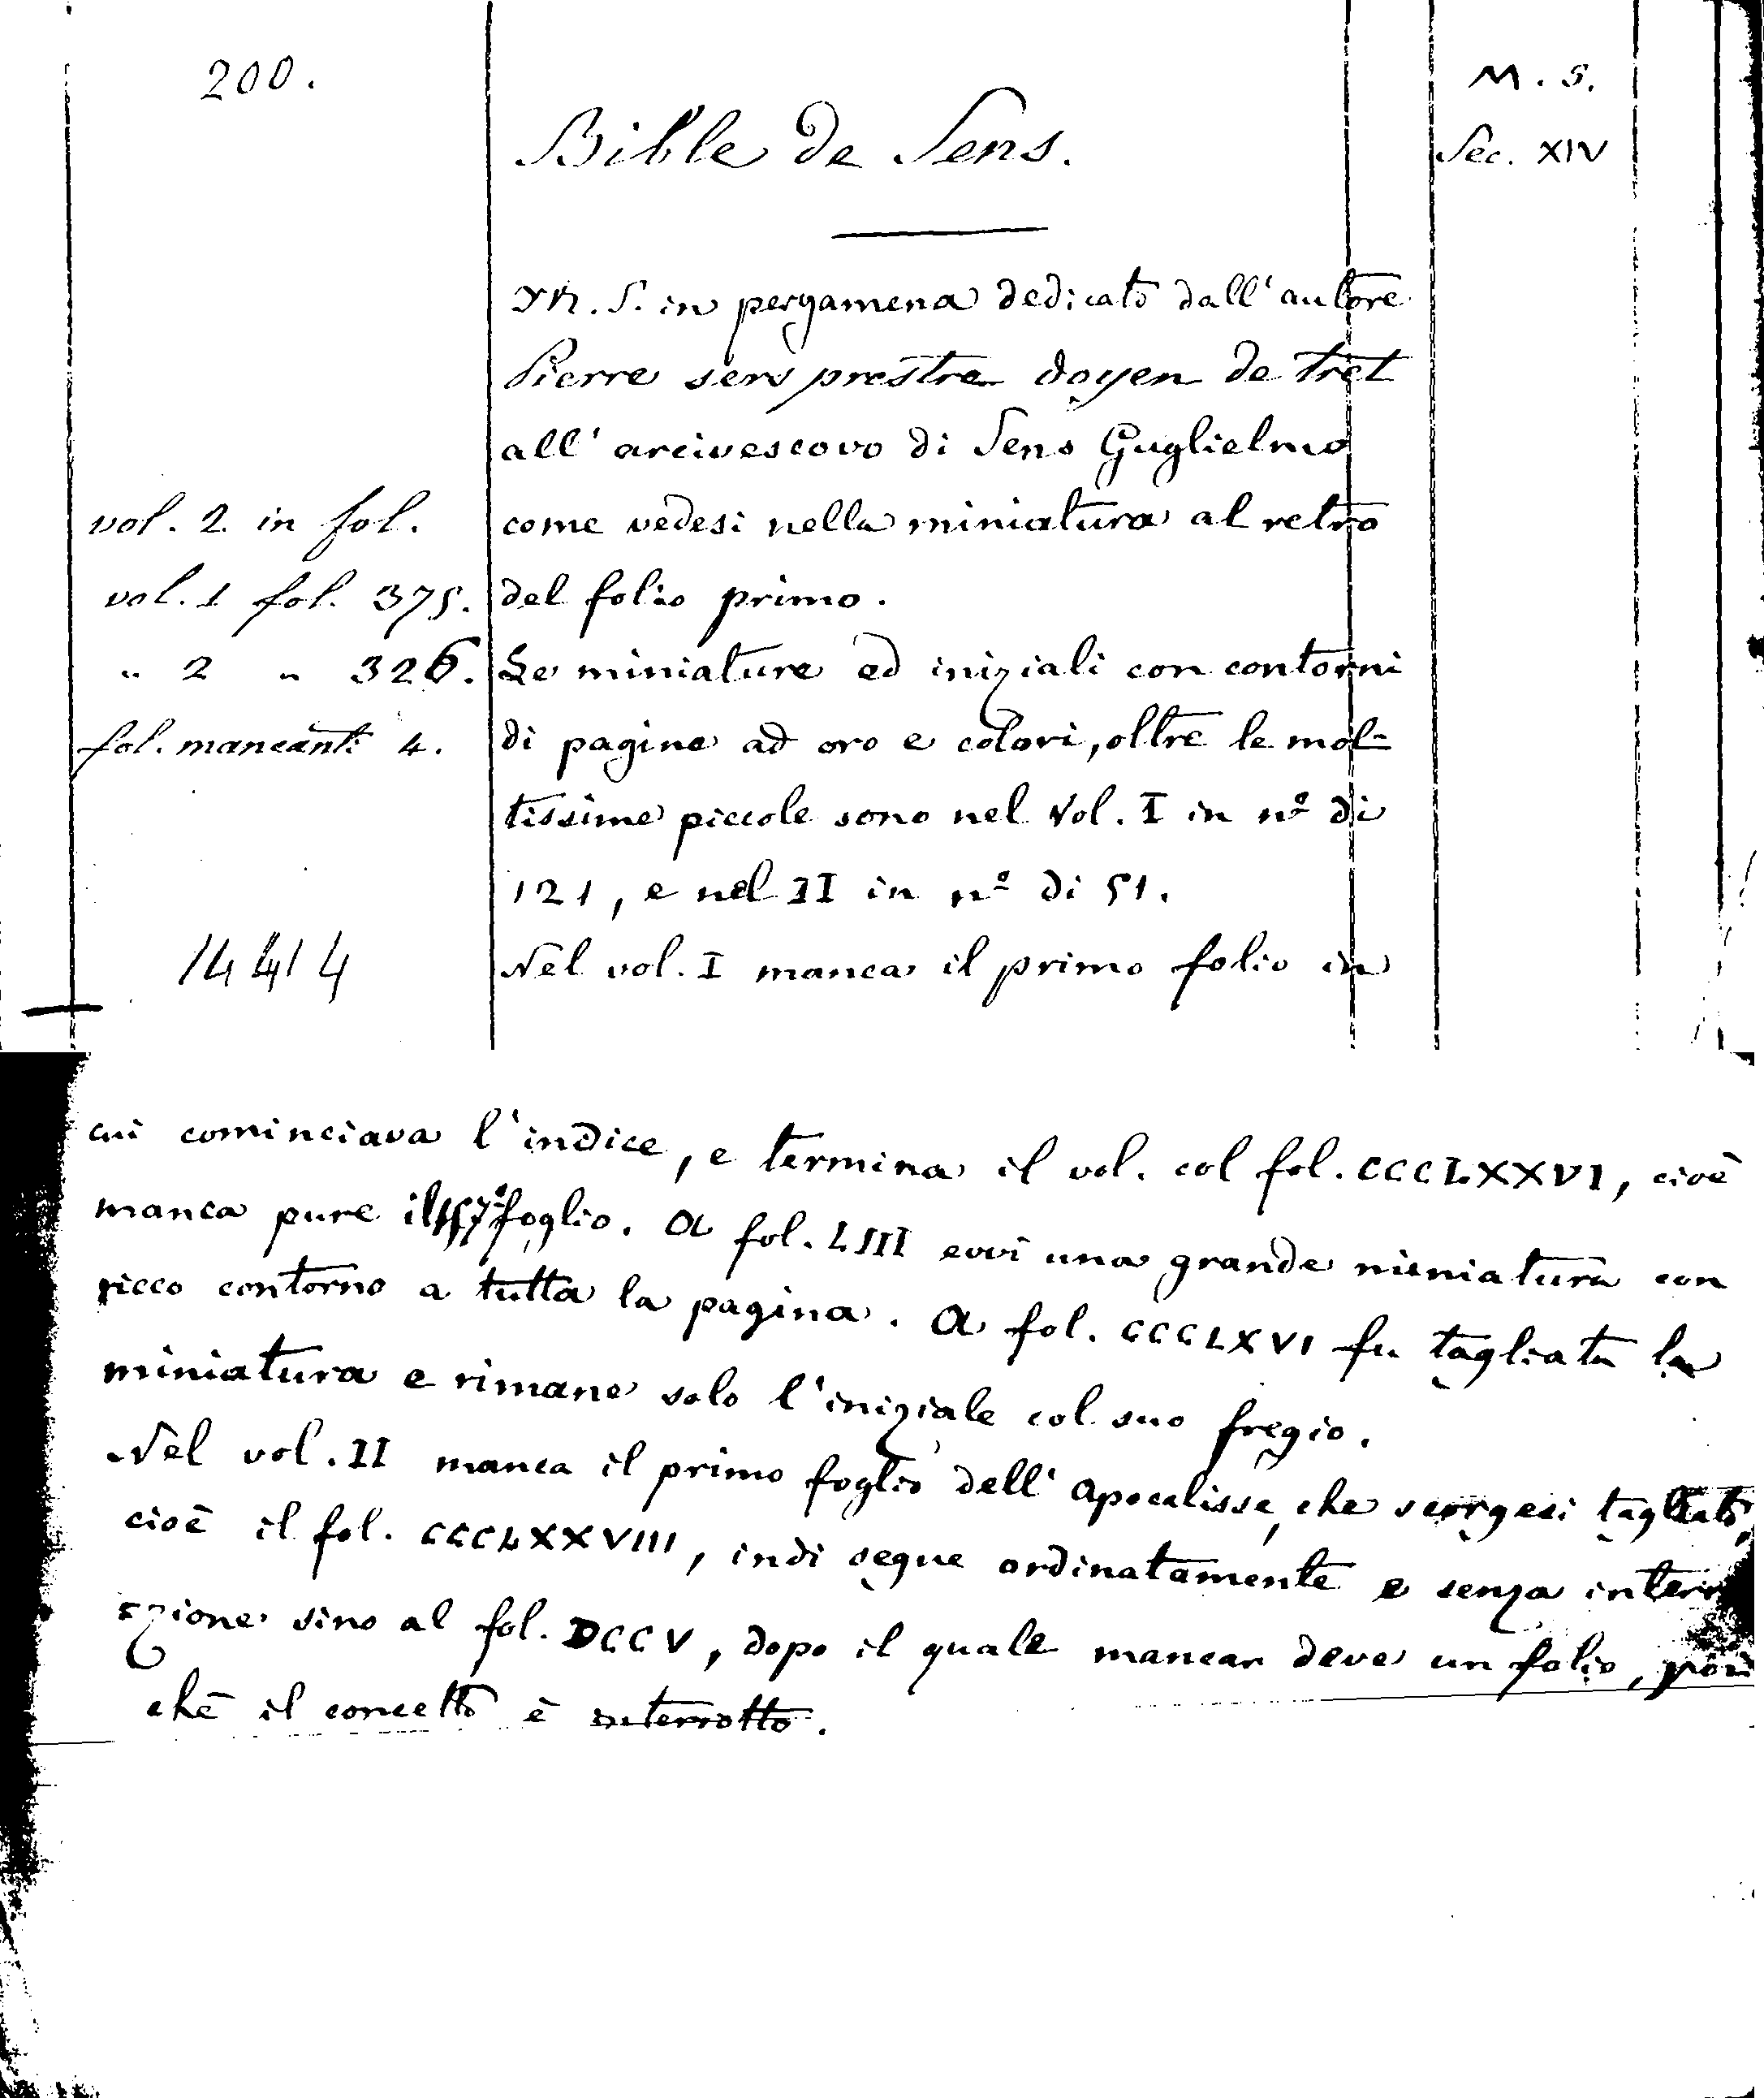 200.
M. S.
Bible de Sens.
Sec. XIV
M. S. in pergamena dedicato dall'autore
Pierre sers prestre doyen de tret
all'arcivescovo di Sens Guglielmo
vol. 2 in fol.
come vedesi nella miniatura al retro
vol. 1 fol. 375.
del folio primo.
" 2 " 326.
Le miniature ed iniziali con contorni
fol. mancanti 4.
di pagine ad oro e colori, oltre le mol-
tissime piccole sono nel Vol. I in nº di
121, e nel II in nº di 51.
14414
Nel vol. I manca il primo folio in
cui cominciava l'indice, e termina il vol. col fol. CCCLXXVI, cioè
manca pure il foglio. A fol. LIII evvi una grande miniatura con
ricco contorno a tutta la pagina. A fol. CCCLXVI fu tagliata la
miniatura e rimane solo l'iniziale col suo fregio.
Nel vol. II manca il primo foglio dell'Apocalisse, che scorgesi tagliato,
cioè il fol. CCCLXXVIII, indi segue ordinatamente e senza interru
zione sino al fol. DCCV, dopo il quale mancar deve un folio, poi
chè il concetto è interrotto.